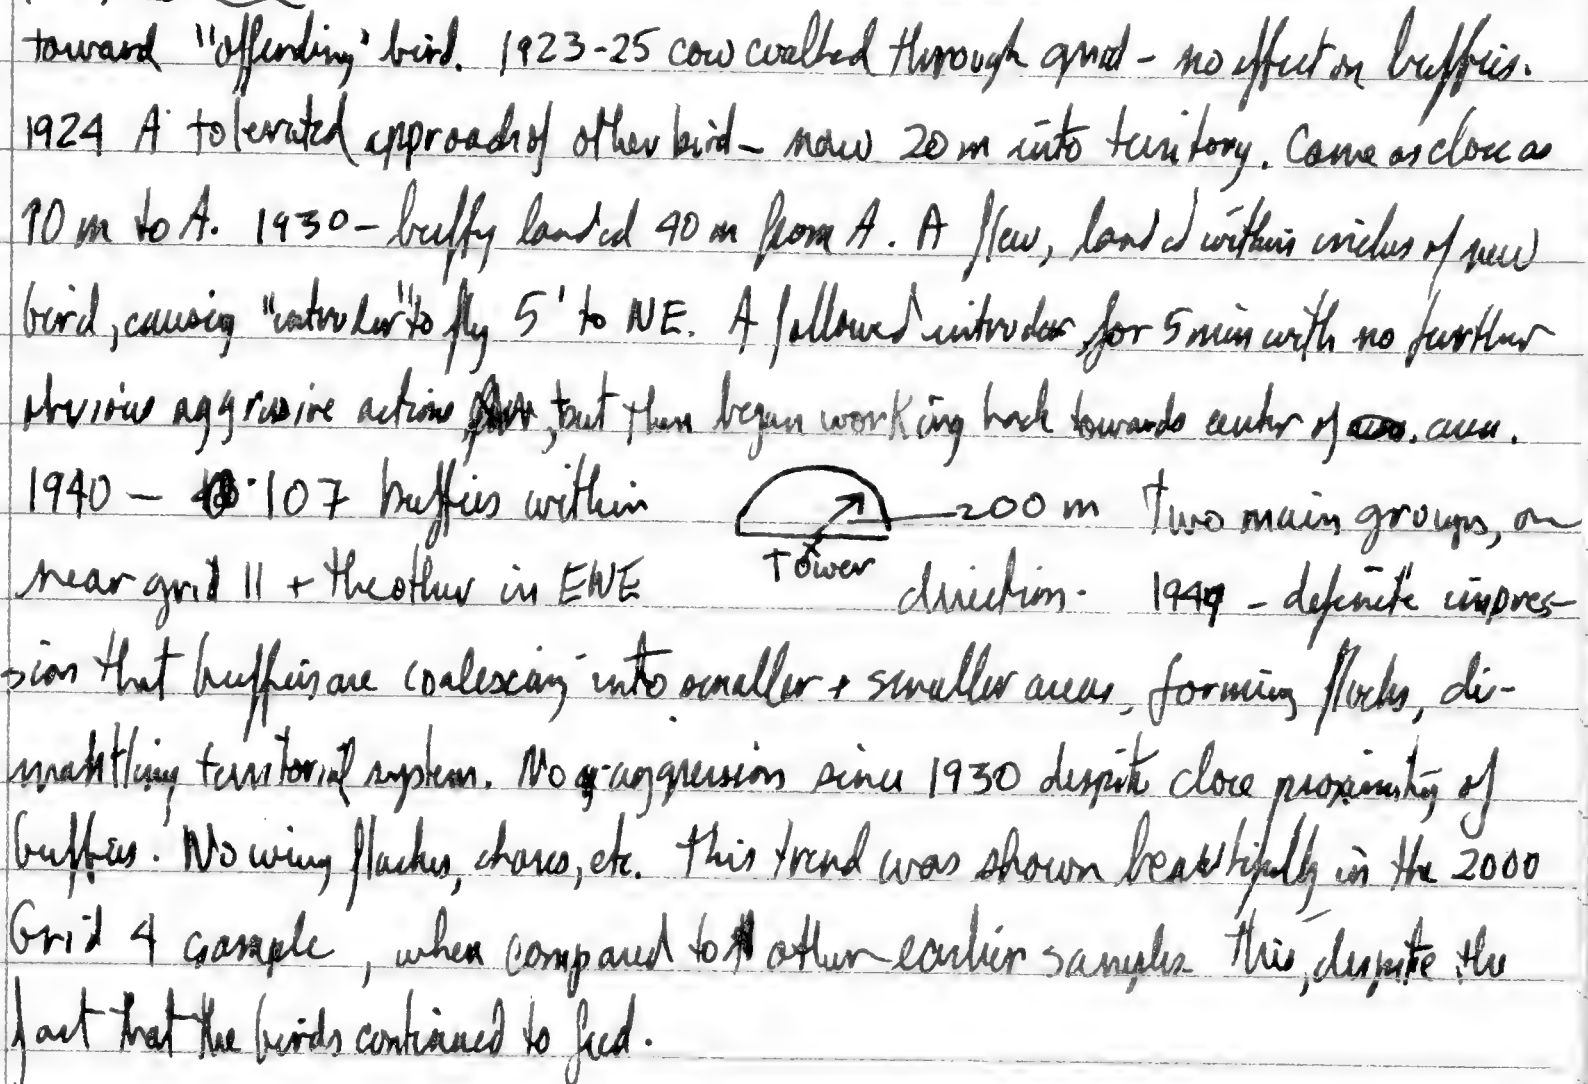 toward "offending" bird. 1923-25 cow walked through grid - no effect on buffies.
1924 A tolerated approach of other bird - now 20 m into territory. Came as close as
10 m to A. 1930 - buffy landed 40 m from A. A flew, landed within inches of new
bird, causing "intruder" to fly 5' to NE. A followed intruder for 5 min with no further
obvious aggressive actions, but then began working back towards center of area.
1940 - 107 buffies within 200 m Two main groups, on
Tower
near grid 11 + the other in ENE direction. 1944 - definite impres-
sion that buffies are coalescing into smaller + smaller areas, forming flocks, di-
smantling territorial system. No aggression since 1930 despite close proximity of
buffies. No wing flashes, chases, etc. This trend was shown beautifully in the 2000
Grid 4 sample, when compared to other earlier samples. This, despite the
fact that the birds continued to feed.